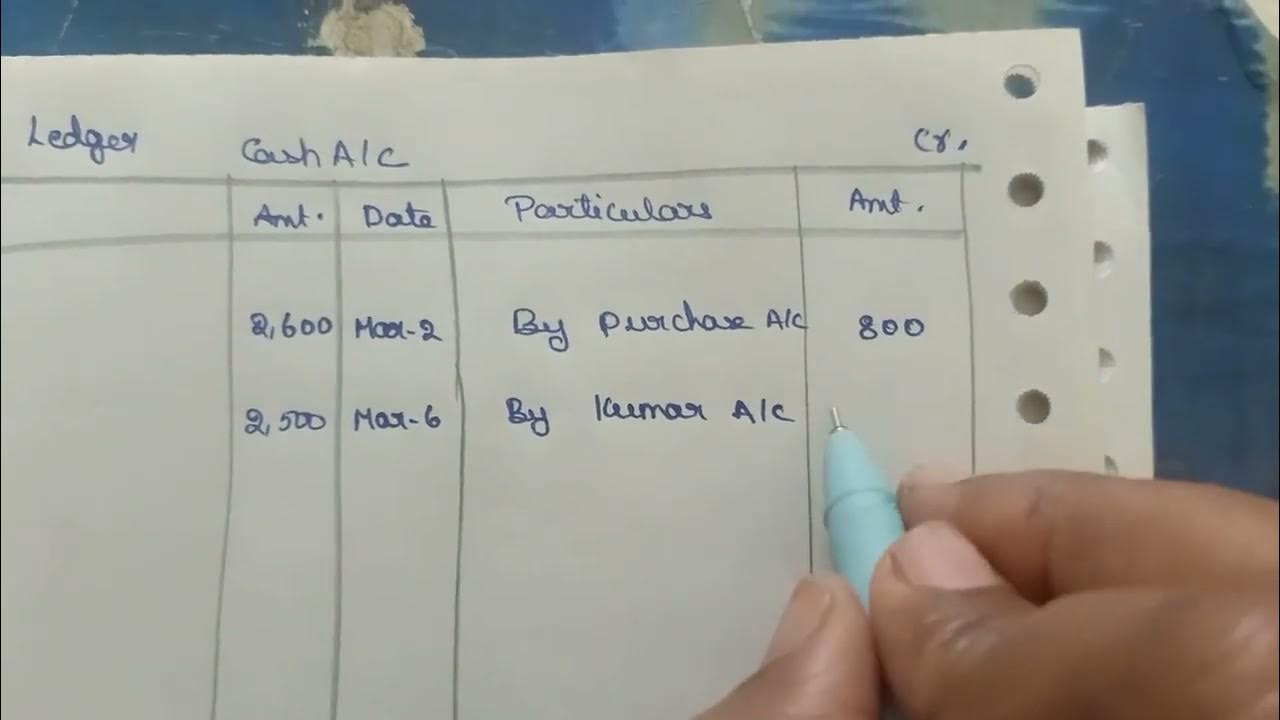 Ledger Cash A/C Cr.
Amt. Date Particulars Amt.
2,600 Mar-2 By Purchase A/C 800
2,500 Mar-6 By Kumar A/C